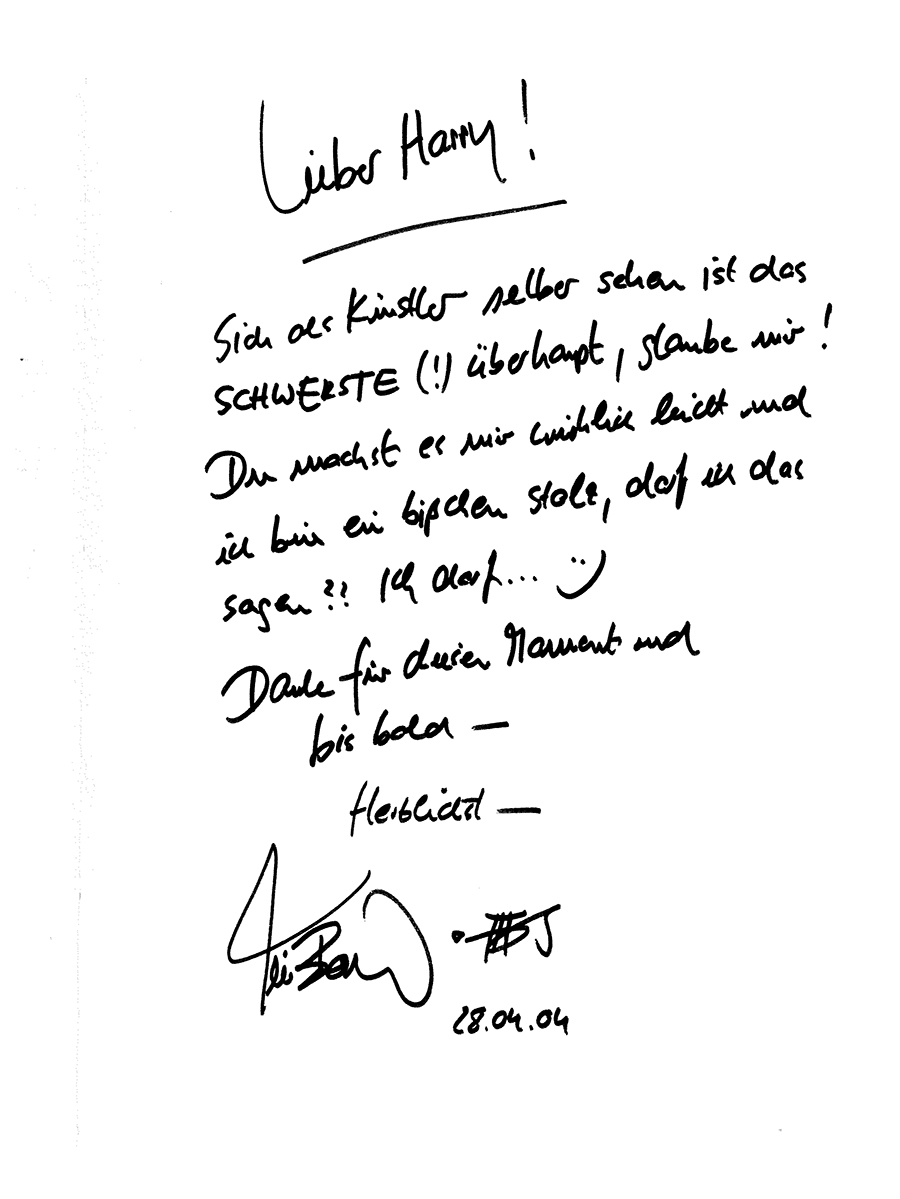 Lieber Harry!
Sich als Künstler selber sehen ist das
SCHWERSTE (!) überhaupt, glaube mir!
Du machst es mir wirklich leicht und
ich bin ein bißchen stolz, darf ich das
sagen?? Ich darf... :)
Danke für diesen Moment und
bis bald —
Herzlichst —
28.04.04